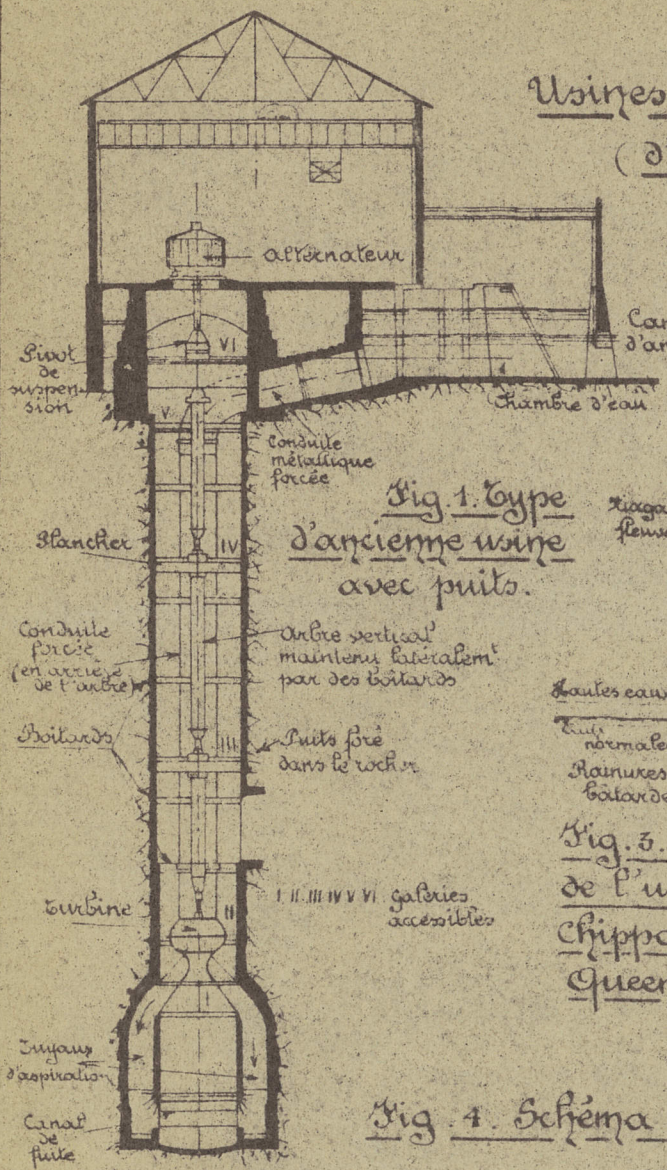 Usines
(d
Alternateur
Pivot
de
suspen-
sion
VI
V
Chambre d'eau
Conduite
métallique
forcée
Fig. 1. Type
d'ancienne usine
avec puits.
fleuv
Plancher
IV
Conduite
forcée
(en arrière
de l'arbre)
Arbre vertical
maintenu latéralemt
par des boitards
Hautes eaux
normale
Rainures
Boitards
III
Puits foré
dans le rocher
Fig. 3.
de l'u
Chippa
Queen
Turbine
II
I II III IV V VI galeries
accessibles
Tuyaux
d'aspiration
Canal
de
fuite
Fig. 4. Schéma